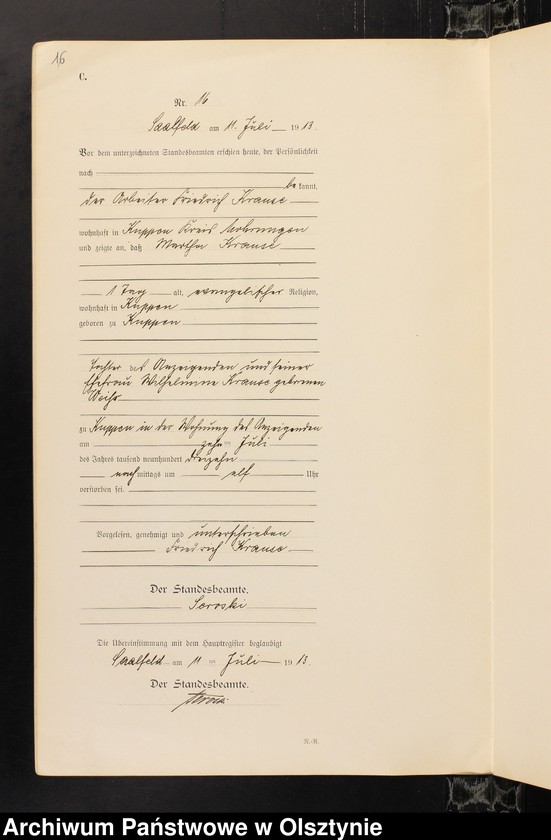 16
C.
Nr. 16
Saalfeld am 11. Juli 1913.
Vor dem unterzeichneten Standesbeamten erschien heute, der Persönlichkeit
nach
bekannt,
der Arbeiter Friedrich Krause
wohnhaft in Kuppen Kreis Mohrungen
und zeigte an, daß Martha Krause
1 Tag alt, evangelischer Religion,
wohnhaft in Kuppen
geboren zu Kuppen
Tochter des Anzeigenden und seiner
Ehefrau Wilhelmine Krause geborenen
zu Kuppen in der Wohnung des Anzeigenden
am zehn ten Juli
des Jahres tausend neunhundert dreizehn
nachmittags um elf Uhr
verstorben sei.
Vorgelesen, genehmigt und unterschrieben
Friedrich Krause
Der Standesbeamte.
Die Übereinstimmung mit dem Hauptregister beglaubigt
Saalfeld am 11 ten Juli 1913.
Der Standesbeamte.
Archiwum Państwowe w Olsztynie